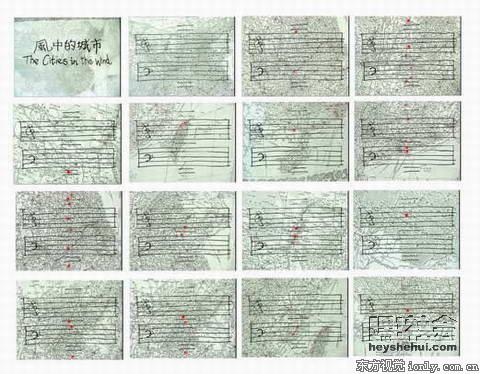 風中的城市
The Cities in the Wind
heyshehui.com
东方视觉 ionly.com.cn